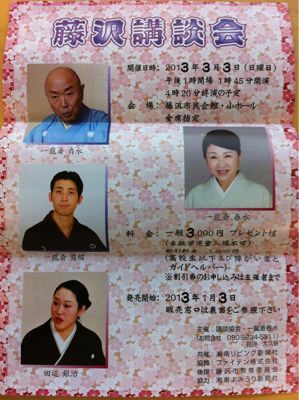 藤沢講談会
開催日時：2013年3月3日（日曜日）
午後1時開場 1時45分開演
4時20分終演の予定
会場：藤沢市民会館・小ホール
全席指定
一龍斎 貞水
一龍斎 春水
一龍斎 貞橘
料金：一般3,000円 プレゼント付
（未就学児童入場不可）
（高校生以下及び障がい者と
ガイドヘルパー）
※割引券のお申し込みは主催者まで
発売開始：2013年1月3日
販売窓口は裏面をご参照下さい
田辺 銀冶
主催：講談協会・一龍斎春水
（お問合せ 090-9234-5911）
担当・大久保
共催：湘南リビング新聞社
協賛：ファイテン株式会社
後援：藤沢市教育委員会
協力：湘南よみうり新聞社